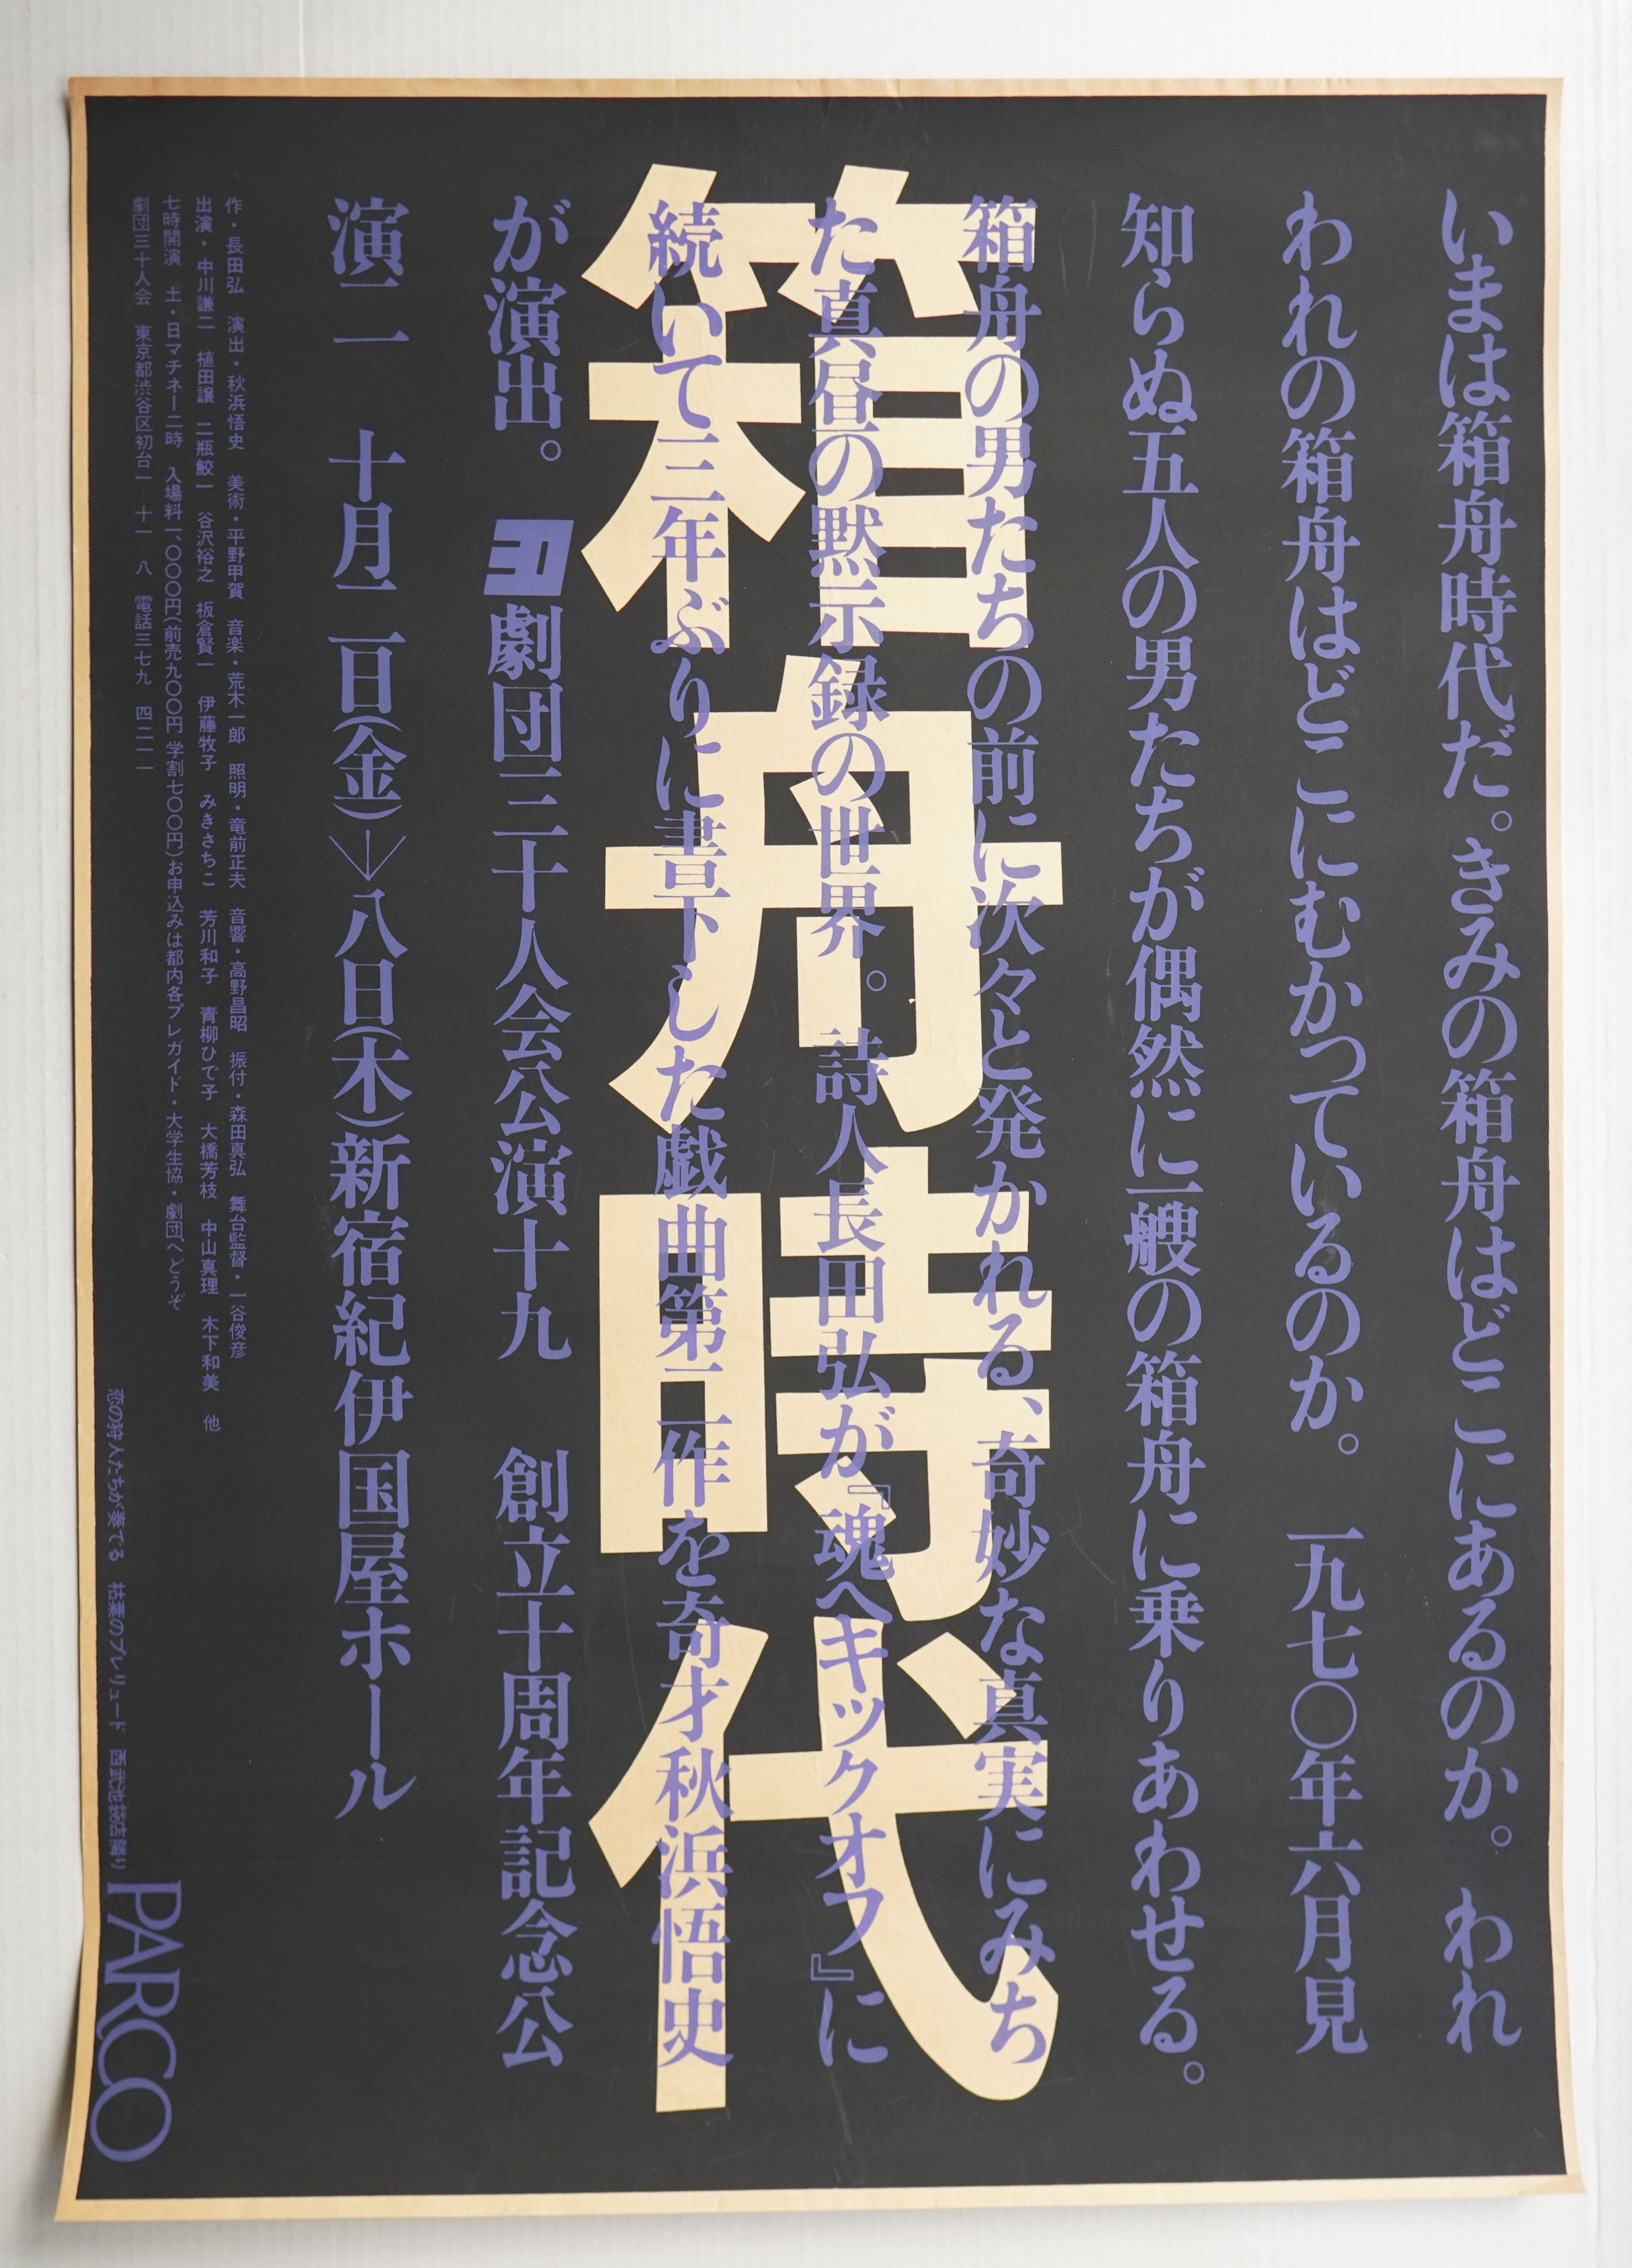 箱舟時代
いまは箱舟時代だ。きみの箱舟はどこにあるのか。われ
われの箱舟はどこにむかっているのか。 一九七〇年六月見
知らぬ五人の男たちが偶然に一艘の箱舟に乗りあわせる。
箱舟の男たちの前に次々と発かれる、奇妙な真実にみち
た真昼の黙示録の世界。詩人長田弘が『魂へキックオフ』に
続いて三年ぶりに書下した戯曲第二作を奇才秋浜悟史
が演出。 30 劇団三十人会公演十九 創立十周年記念公
演二 十月二日(金)→八日(木)新宿紀伊国屋ホール
作・長田弘 演出・秋浜悟史 美術・平野甲賀 音楽・荒木一郎 照明・竜前正夫 音響・高野昌昭 振付・森田真弘 舞台監督・一谷俊彦
出演・中川謙二 植田譲 二瓶鮫一 谷沢裕之 板倉賢一 伊藤牧子 みきさちこ 芳川和子 青柳ひで子 大橋芳枝 中山真理 木下和美 他
七時開演 土・日マチネー二時 入場料一、〇〇〇円(前売九〇〇円 学割七〇〇円)お申込みは都内各プレガイド・大学生協・劇団へどうぞ
劇団三十人会 東京都渋谷区初台一 十一 八 電話三七九 四二一一
恋の狩人たちが奏でる 枯葉のプレリュード 西武池袋店隣り
PARCO